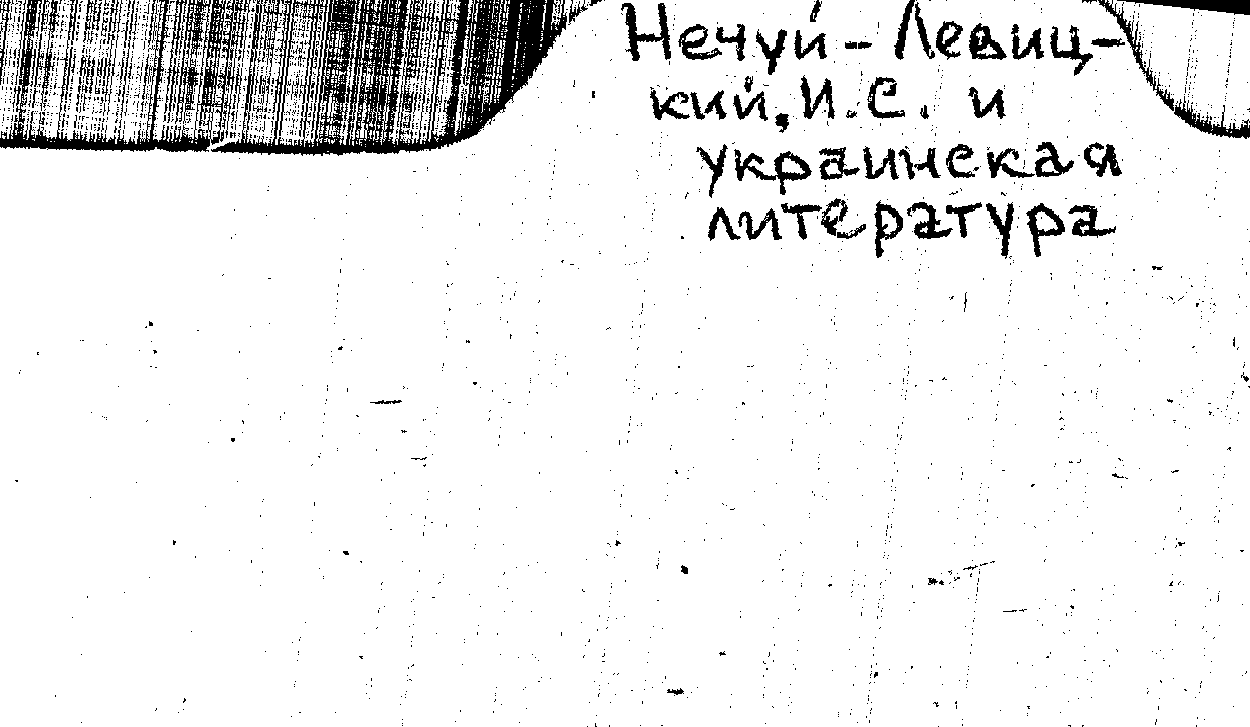 Нечуй-Левиц-
кий, И.С. и
украинская
литература